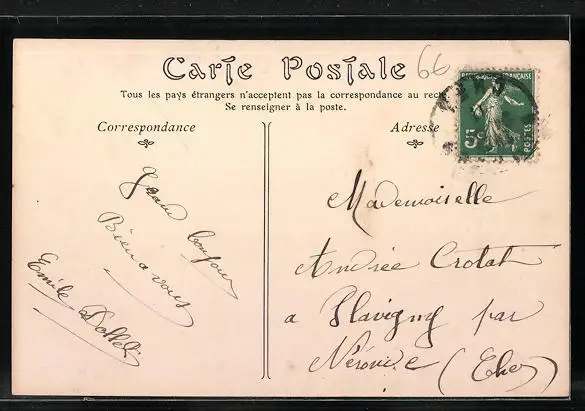 Carte Postale
66
Tous les pays étrangers n'acceptent pas la correspondance au recto
Se renseigner à la poste.
Correspondance
Adresse
RÉPUBLIQUE FRANÇAISE
5c
POSTES
Grand bonjour
Bien a vous
Emile
Mademoiselle
Andrée Crotat
a Flavigny par
Nérondes (Cher)